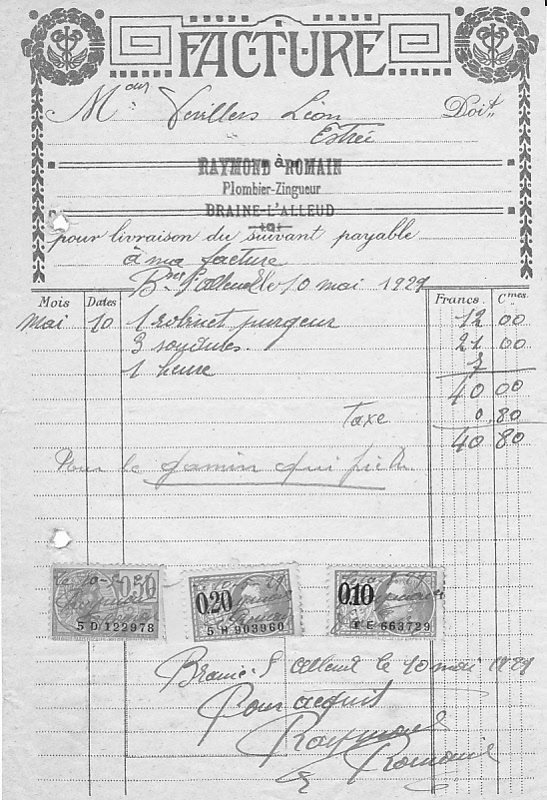 FACTURE
Mour : Vevillers Léon Doit
Estrée
à
RAYMOND ROMAIN
Plombier-Zingueur
BRAINE-L'ALLEUD
pour livraison du suivant payable
à ma facture
Bne l'alleud le 10 mai 1929
Mois Dates Francs. Cmes.
Mai 10 1 robinet purgeur 12 00
3 soudures. 21 00
1 heure 7
40 00
Taxe 0.80
40 80
Pour le gamin qui
le 10-5-29 0.50
5 D/122978
0.20
5 H 903960
0.10
1 E 663729
Braine-l'alleud le 10 mai 1929
Pour acquit
Raymond
Romain